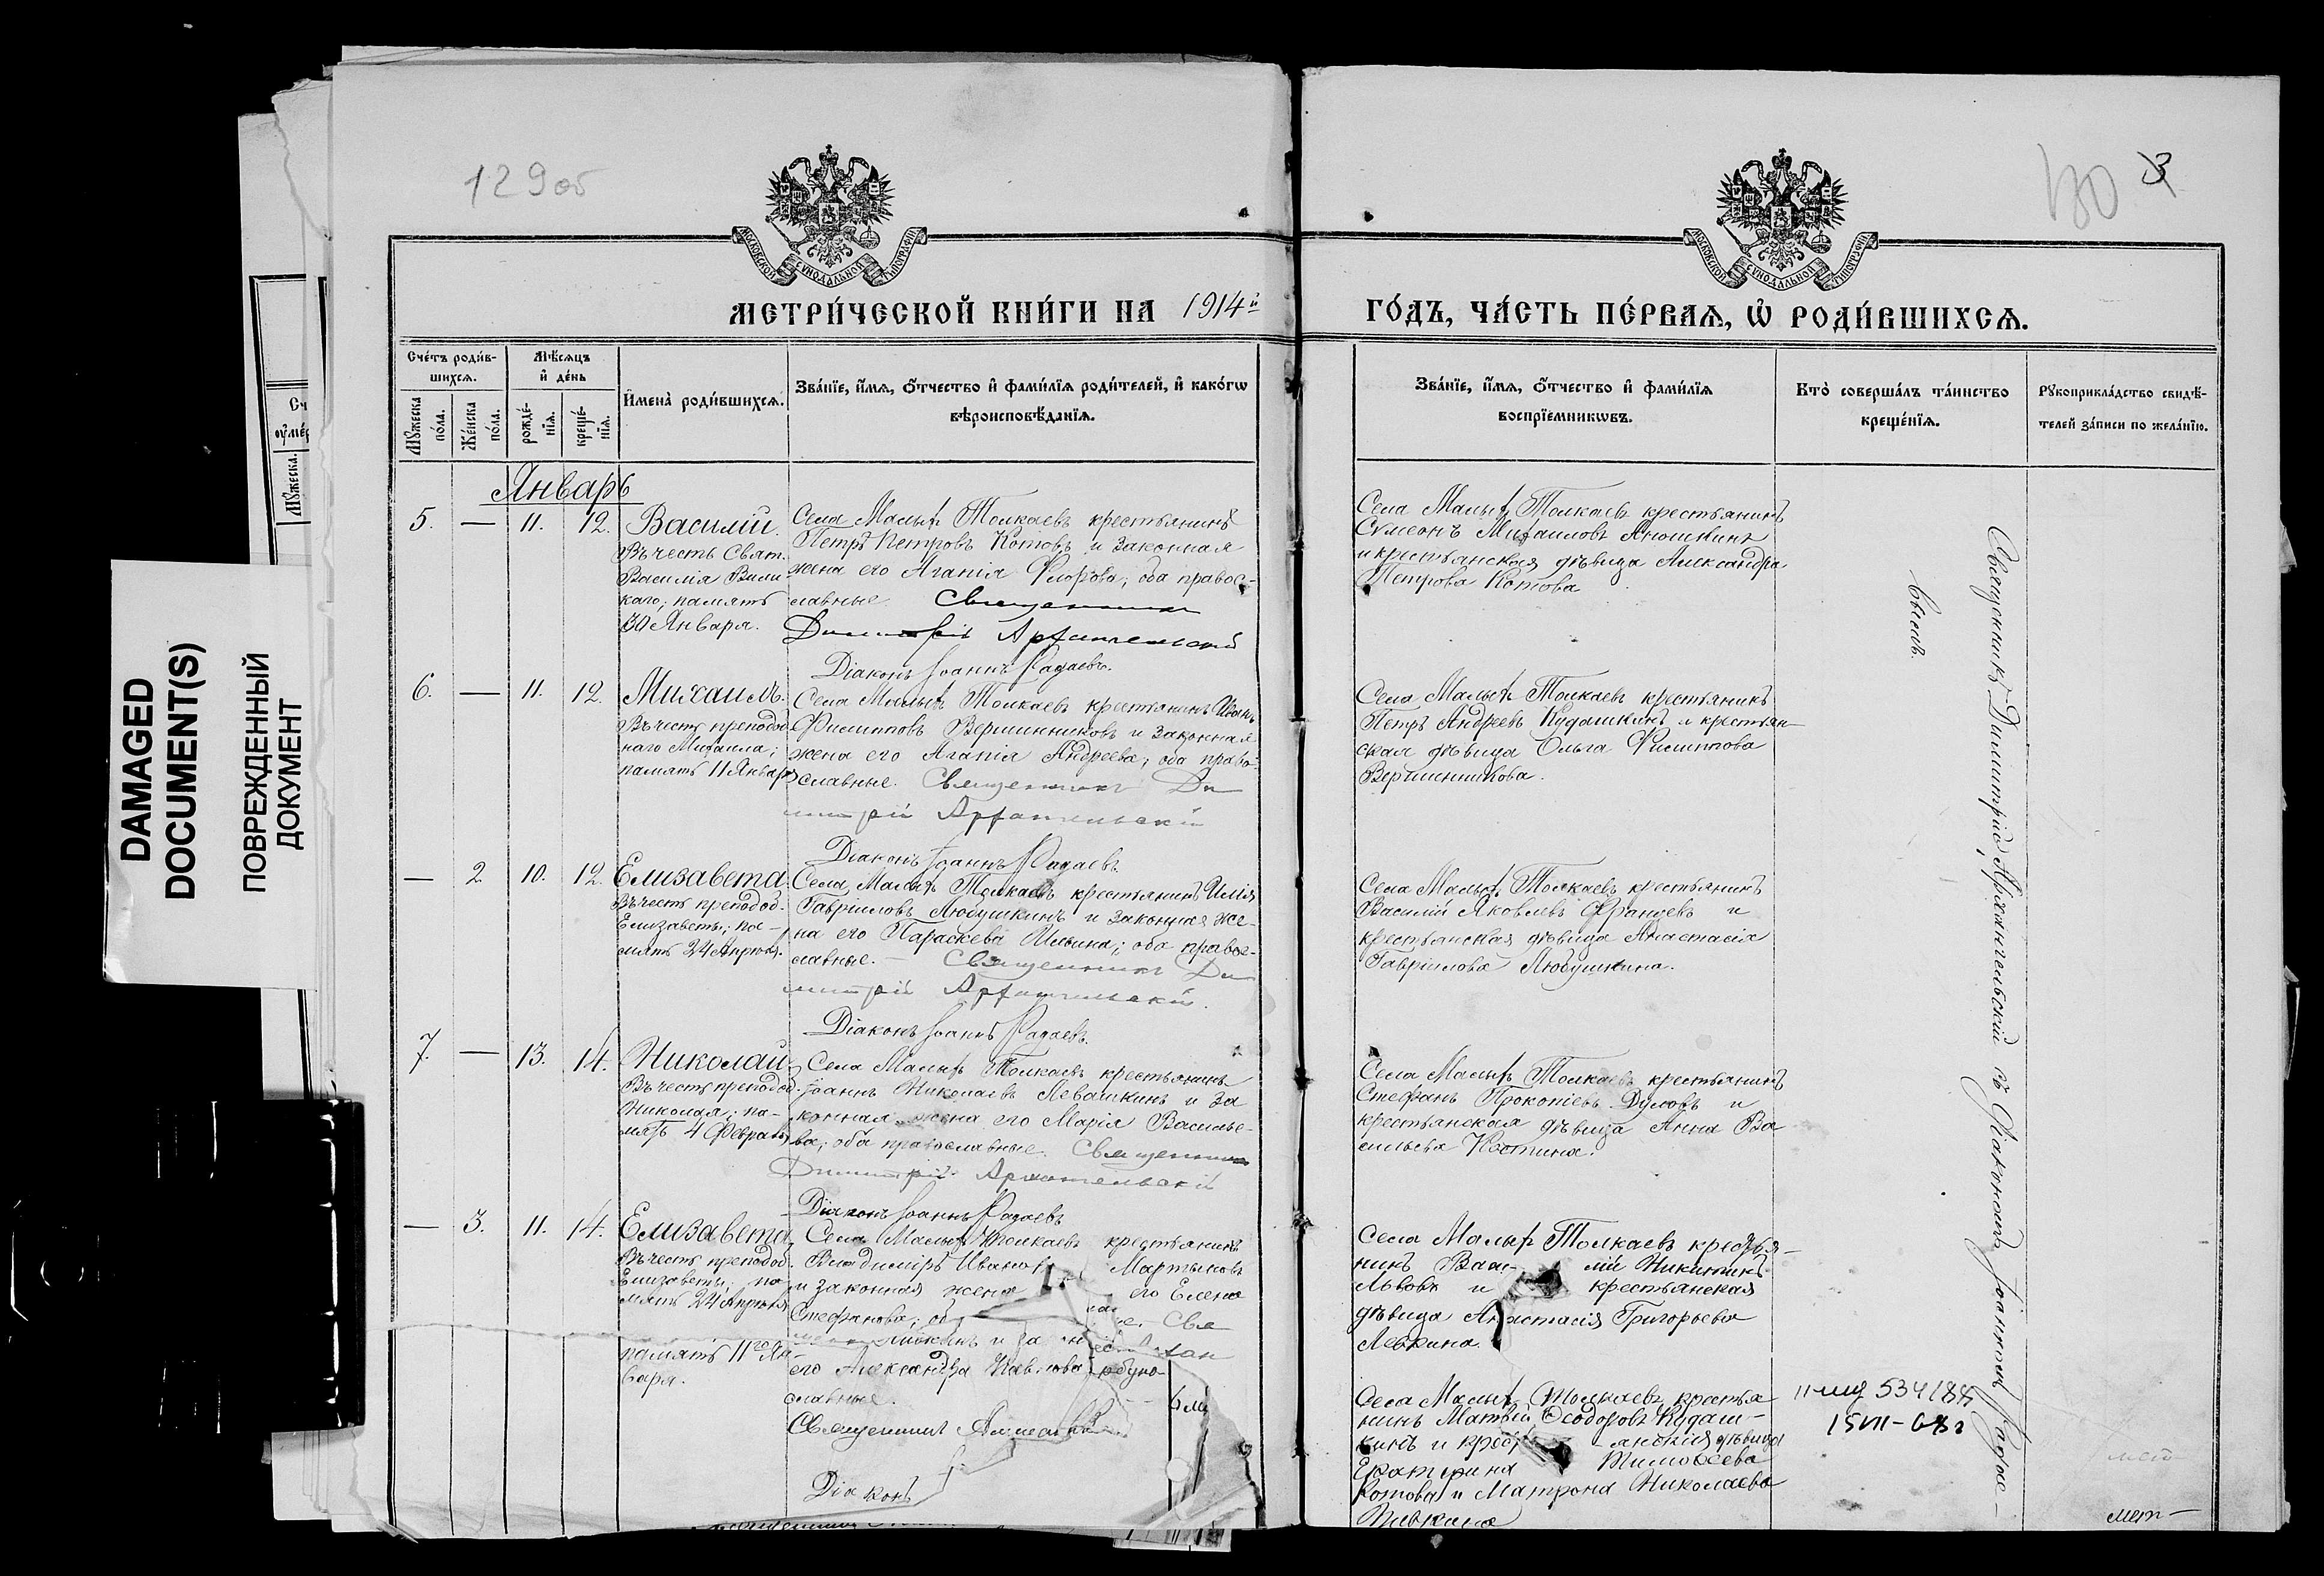 DAMAGED
DOCUMENT(S)
ПОВРЕЖДЕННЫЙ
ДОКУМЕНТ
129об
130 3
МОСКОВСКОЙ СѴНОДАЛЬНОЙ ТИПОГРАФІИ
МОСКОВСКОЙ СѴНОДАЛЬНОЙ ТИПОГРАФІИ
МЕТРИ́ЧЕСКОЙ КНИ́ГИ НА 1914й
ГО́ДЪ, ЧА́СТЬ ПЕ́РВАѦ, Ѡ҆ РОДИ́ВШИХСѦ.
Сче́тъ роди́в-
шихсѧ.
Мѣ́сѧцъ
и҆ де́нь
Мꙋ́жеска по́ла.
Же́нска по́ла.
рожде́-нїѧ.
креще́-нїѧ.
И҆мена̀ роди́вшихсѧ.
Зва́нїе, и҆́мѧ, ѻ҆́тчество и҆ фами́лїѧ роди́телей, и҆ како́гѡ
вѣроисповѣ́данїѧ.
Зва́нїе, и҆́мѧ, ѻ҆́тчество и҆ фами́лїѧ
воспрїе́мникѡвъ.
Кто̀ соверша́лъ та́инство
креще́нїѧ.
Рꙋкоприкла́дство свидѣ́-
телей за́писи по жела́нїю.
Январь
5. — 11. 12. Василій.
Въ честь Свят.
Василія Вели-
каго; память
30 Января.
Села Малыхъ Толкаевъ крестьянинъ
Петръ Петровъ Котовъ и законная
жена его Агапія Флорова; оба правос-
лавные. Священникъ
Димитрій Архангельскій
Діаконъ Іоаннъ Радаевъ.
Села Малыхъ Толкаевъ крестьянинъ
Сѵмеонъ Михаиловъ Анюшкинъ
и крестьянская дѣвица Александра
Петрова Котова
6. — 11. 12. Михаилъ.
Въ честь преподоб-
наго Михаила;
память 11 Января
Села Малыхъ Толкаевъ крестьянинъ Иванъ
Филипповъ Вершинниковъ и законная
жена его Агапія Андреева; оба право-
славные. Священникъ Ди
митрій Архангельскій
Діаконъ Іоаннъ Радаевъ
Села Малыхъ Толкаевъ крестьянинъ
Петръ Андреевъ Кудашкинъ и крестьян-
ская дѣвица Ольга Филиппова
Вершинникова.
— 2 10. 12. Елизавета.
Въ честь преподоб.
Елизаветы; па-
мять 24 Апрѣля.
Села Малыхъ Толкаевъ крестьянинъ Илія
Гавріиловъ Любушкинъ и законная же-
на его Параскева Ильина; оба правос-
лавные. — Священникъ Ди
митрій Архангельскій.
Діаконъ Іоаннъ Радаевъ.
Села Малыхъ Толкаевъ крестьянинъ
Василій Яковлевъ Францевъ и
крестьянская дѣвица Анастасія
Гавріилова Любушкина.
7. — 13. 14. Николай.
Въ честь преподоб.
Николая; па-
мять 4 Февраля
Села Малыхъ Толкаевъ крестьянинъ
Іоаннъ Николаевъ Левашкинъ и за
конная жена его Марія Василье-
ва; оба православные. Священникъ
Димитрій Архангельскій
Діаконъ Іоаннъ Радаевъ
Села Малыхъ Толкаевъ крестьянинъ
Стефанъ Прокопіевъ Думовъ и
крестьянская дѣвица Анна Ва
сильева Костина.
— 3. 11. 14. Елизавета
Въ честь преподоб.
Елизаветы; па-
мять 24 Апрѣля
Села Малыхъ Толкаевъ крестьянинъ
Владиміръ Иванов Мартыновъ
и законная жена его Елена
Стефанова; об
Села Малыхъ Толкаевъ крестья-
нинъ Васи- лій Никитинъ
Львовъ и крестьянская
дѣвица Анастасія Григорьева
Левкина.
память 11го Ян-
варя.
его Александра Павлова
славные.
Священникъ
Діаконъ
Села Малыхъ Толкаевъ крестья
нинъ Матвѣй Ѳеодоровъ Кудаш-
кинъ и крест- янская дѣвица
Екатерина Тимоѳеева
Котова и Матрона Николаева
Пивкина
Священникъ Димитрій Архангельскій съ Діакономъ Іоанномъ Радае-
вымъ.
534184
15VII-68г